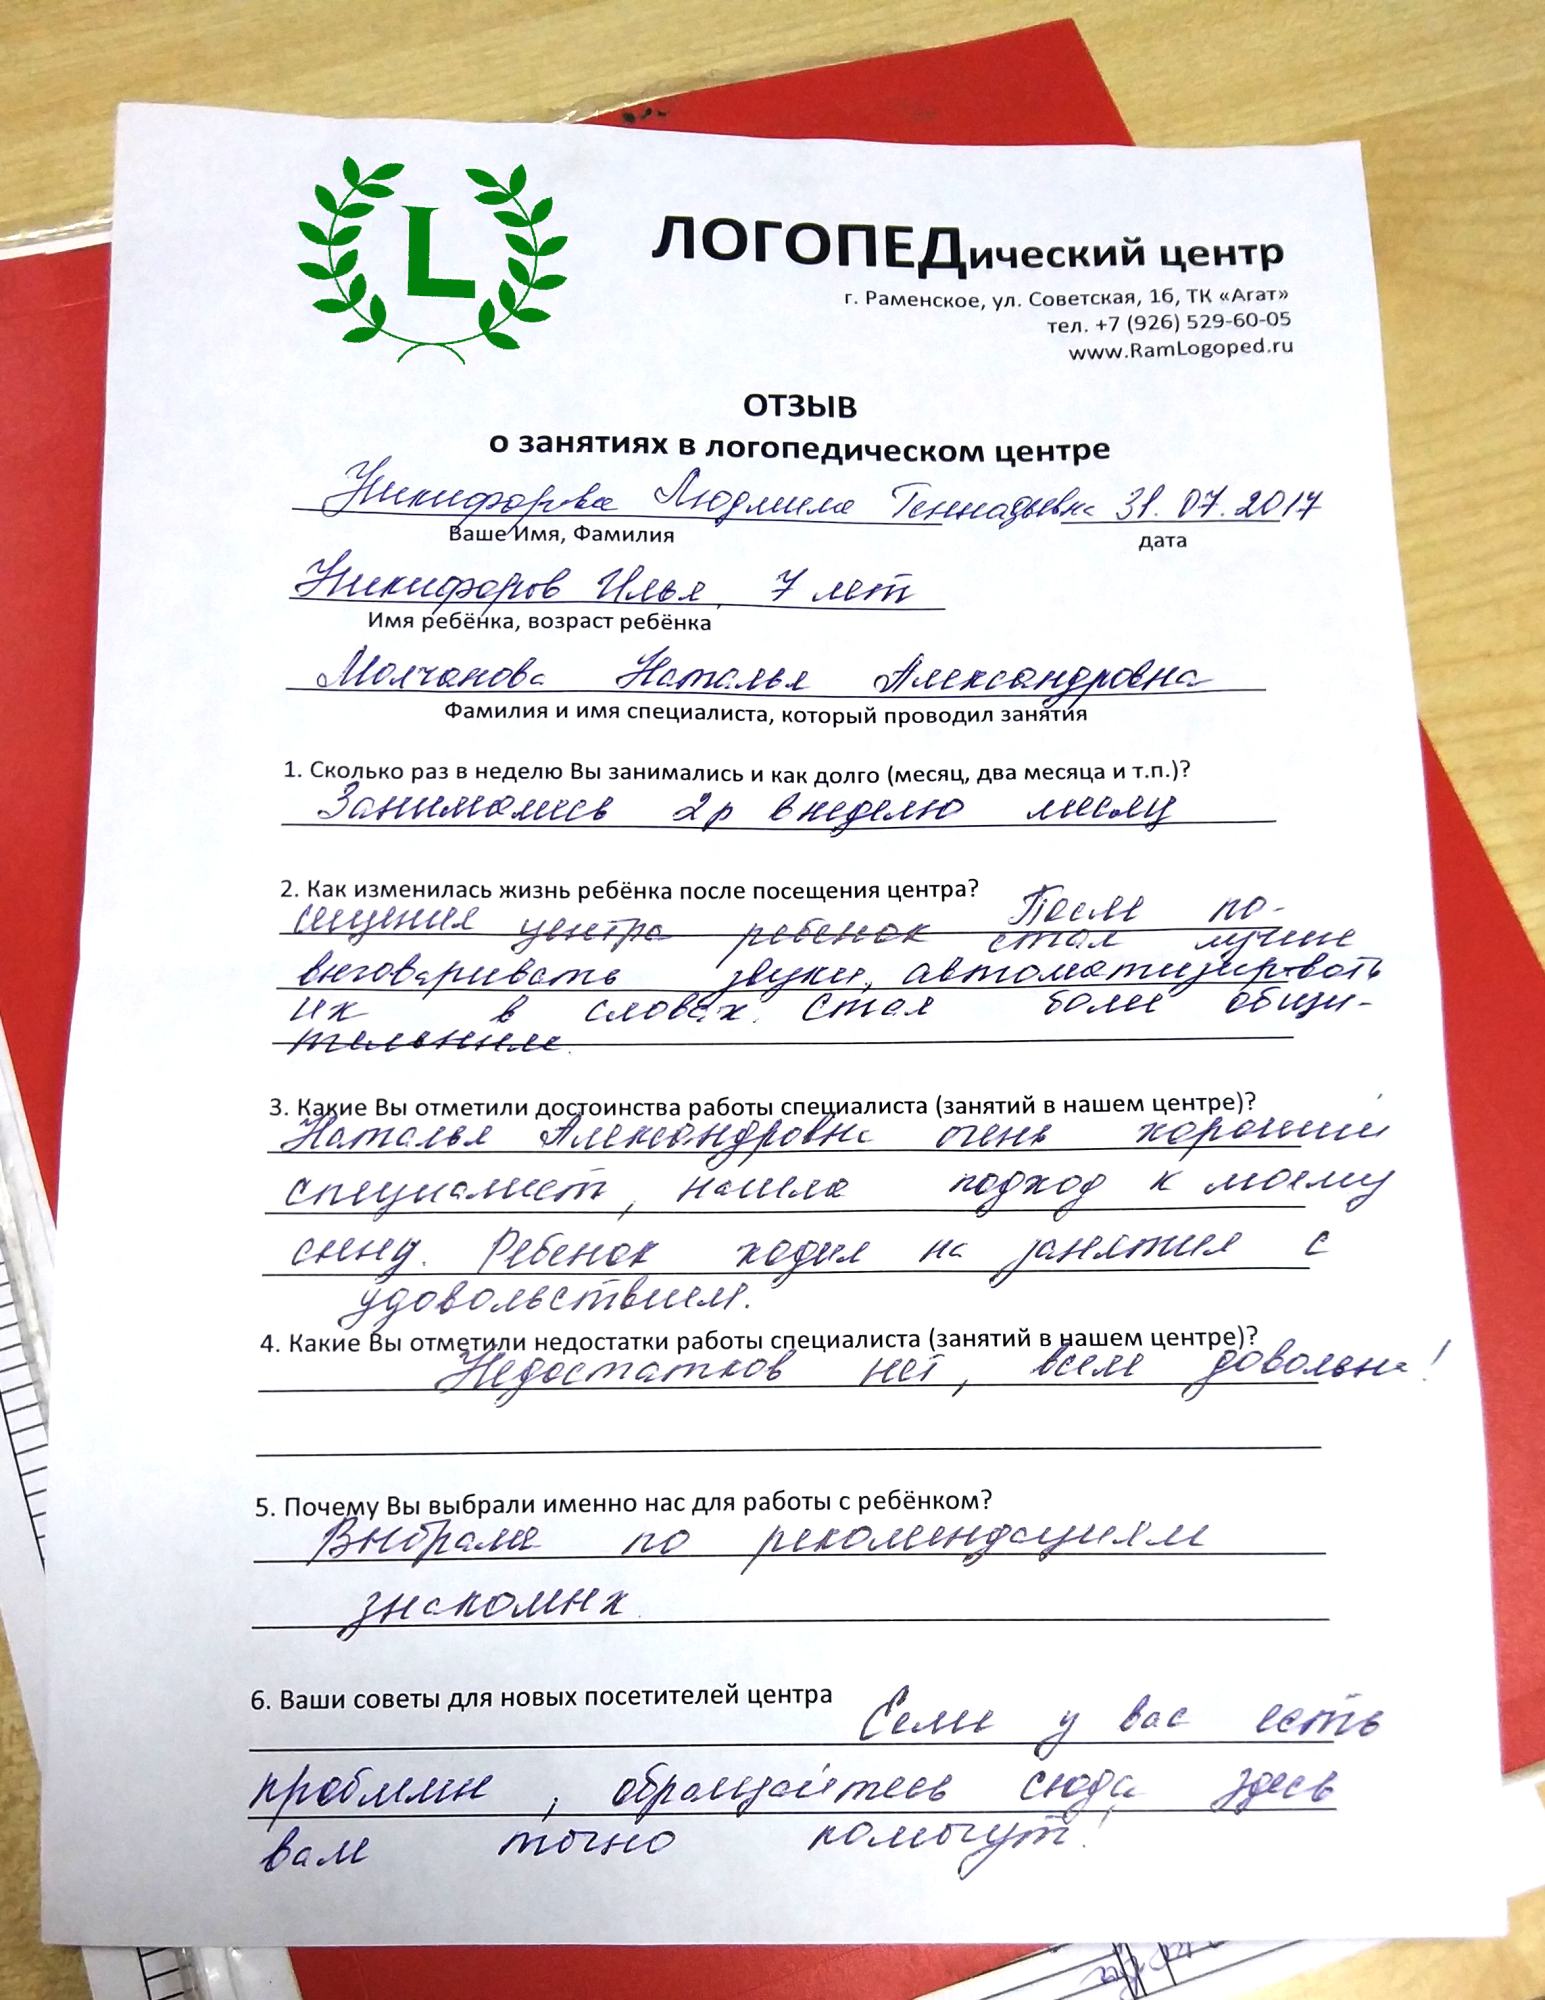 L
ЛОГОПЕДический центр
г. Раменское, ул. Советская, 16, ТК «Агат»
тел. +7 (926) 529-60-05
www.RamLogoped.ru
ОТЗЫВ
о занятиях в логопедическом центре
Никифорова Людмила Геннадьевна 31.07.2017
Ваше Имя, Фамилия дата
Никифоров Илья, 7 лет
Имя ребёнка, возраст ребёнка
Молчанова Наталья Александровна
Фамилия и имя специалиста, который проводил занятия
1. Сколько раз в неделю Вы занимались и как долго (месяц, два месяца и т.п.)?
Занимались 2р в неделю месяц
2. Как изменилась жизнь ребёнка после посещения центра? После по-
сещения центра ребенок стал лучше
выговаривать звуки, автоматизировать
их в словах. Стал более общи-
тельным.
3. Какие Вы отметили достоинства работы специалиста (занятий в нашем центре)?
Наталья Александровна очень хороший
специалист, нашла подход к моему
сыну. Ребенок ходил на занятия с
удовольствием.
4. Какие Вы отметили недостатки работы специалиста (занятий в нашем центре)?
Недостатков нет, всем довольна!
5. Почему Вы выбрали именно нас для работы с ребёнком?
Выбрала по рекомендациям
знакомых.
6. Ваши советы для новых посетителей центра Если у вас есть
проблемы, обращайтесь сюда, здесь
вам точно помогут!